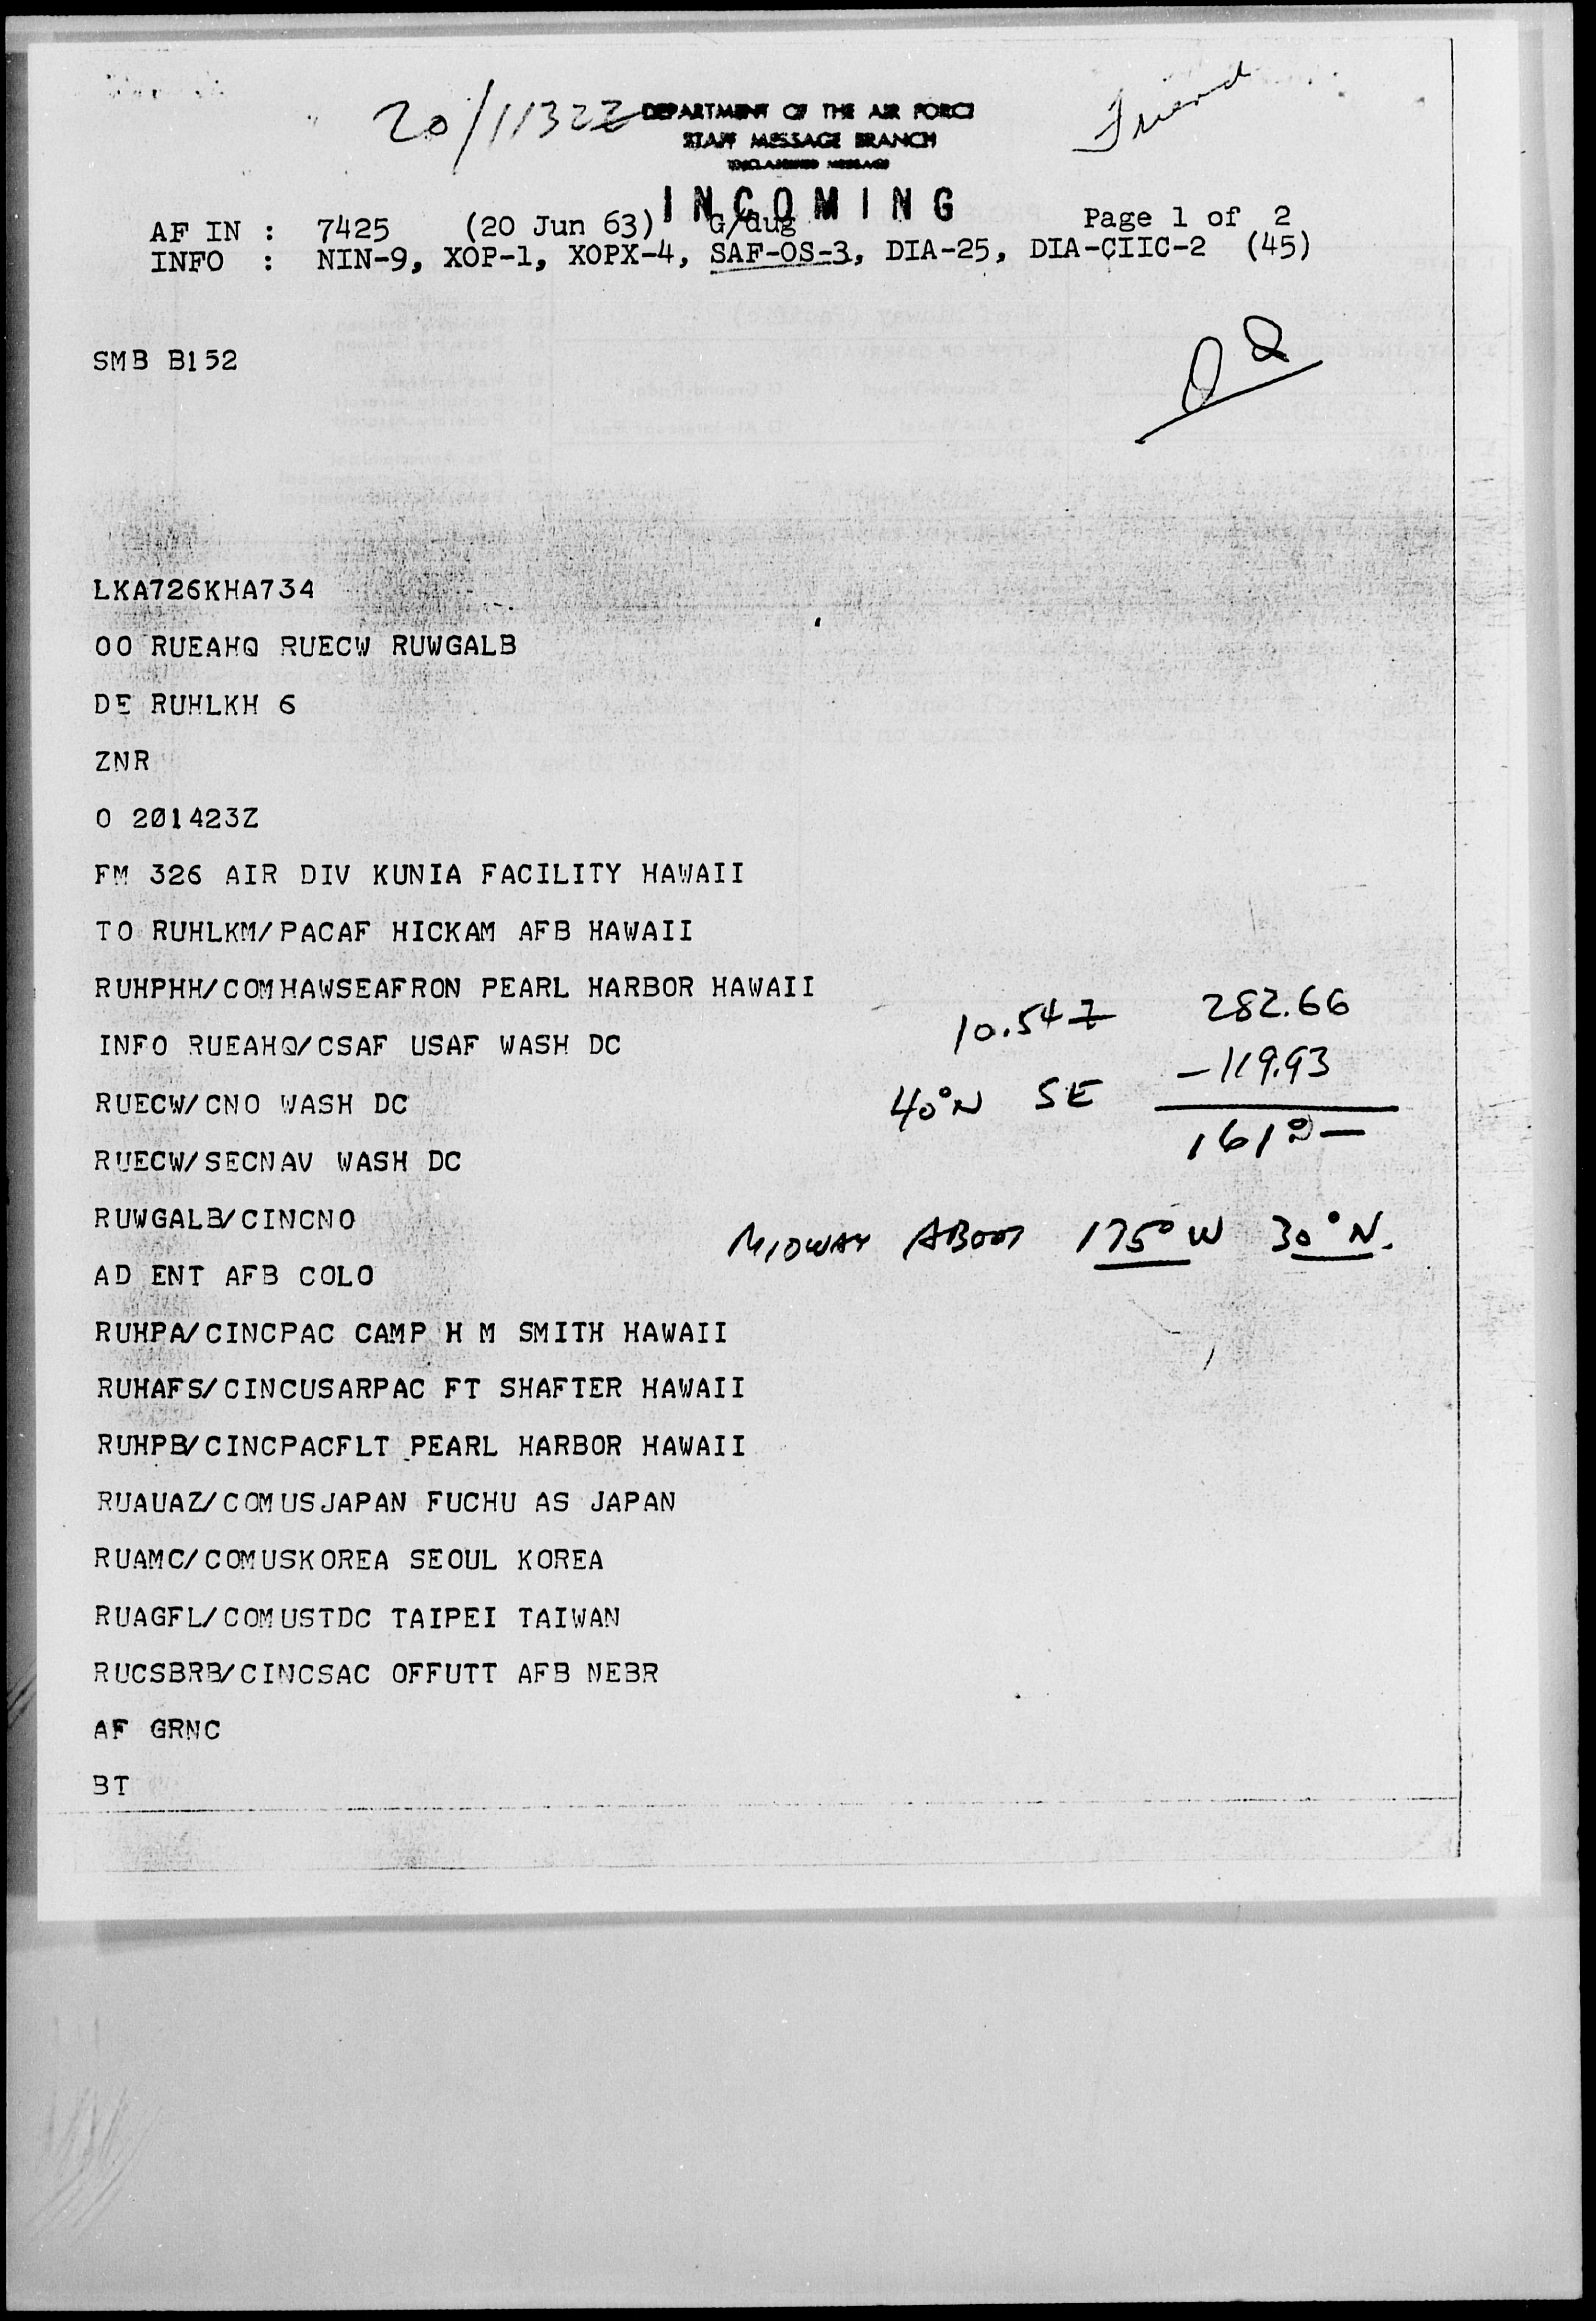 20/1132Z
Friend
DEPARTMENT OF THE AIR FORCE
STAFF MESSAGE BRANCH
UNCLASSIFIED MESSAGE
INCOMING
AF IN : 7425 (20 Jun 63) G/dug Page 1 of 2
INFO : NIN-9, XOP-1, XOPX-4, SAF-OS-3, DIA-25, DIA-CIIC-2 (45)
SMB B152
LKA726KHA734
OO RUEAHQ RUECW RUWGALB
DE RUHLKH 6
ZNR
O 201423Z
FM 326 AIR DIV KUNIA FACILITY HAWAII
TO RUHLKM/PACAF HICKAM AFB HAWAII
RUHPHH/COMHAWSEAFRON PEARL HARBOR HAWAII
INFO RUEAHQ/CSAF USAF WASH DC
RUECW/CNO WASH DC
RUECW/SECNAV WASH DC
RUWGALB/CINCNO
AD ENT AFB COLO
RUHPA/CINCPAC CAMP H M SMITH HAWAII
RUHAFS/CINCUSARPAC FT SHAFTER HAWAII
RUHPB/CINCPACFLT PEARL HARBOR HAWAII
RUAUAZ/COMUSJAPAN FUCHU AS JAPAN
RUAMC/COMUSKOREA SEOUL KOREA
RUAGFL/COMUSTDC TAIPEI TAIWAN
RUCSBRB/CINCSAC OFFUTT AFB NEBR
AF GRNC
BT
10.54Z 282.66
40°N SE -119.93
161°-
MIDWAY ABOUT 175°W 30°N.